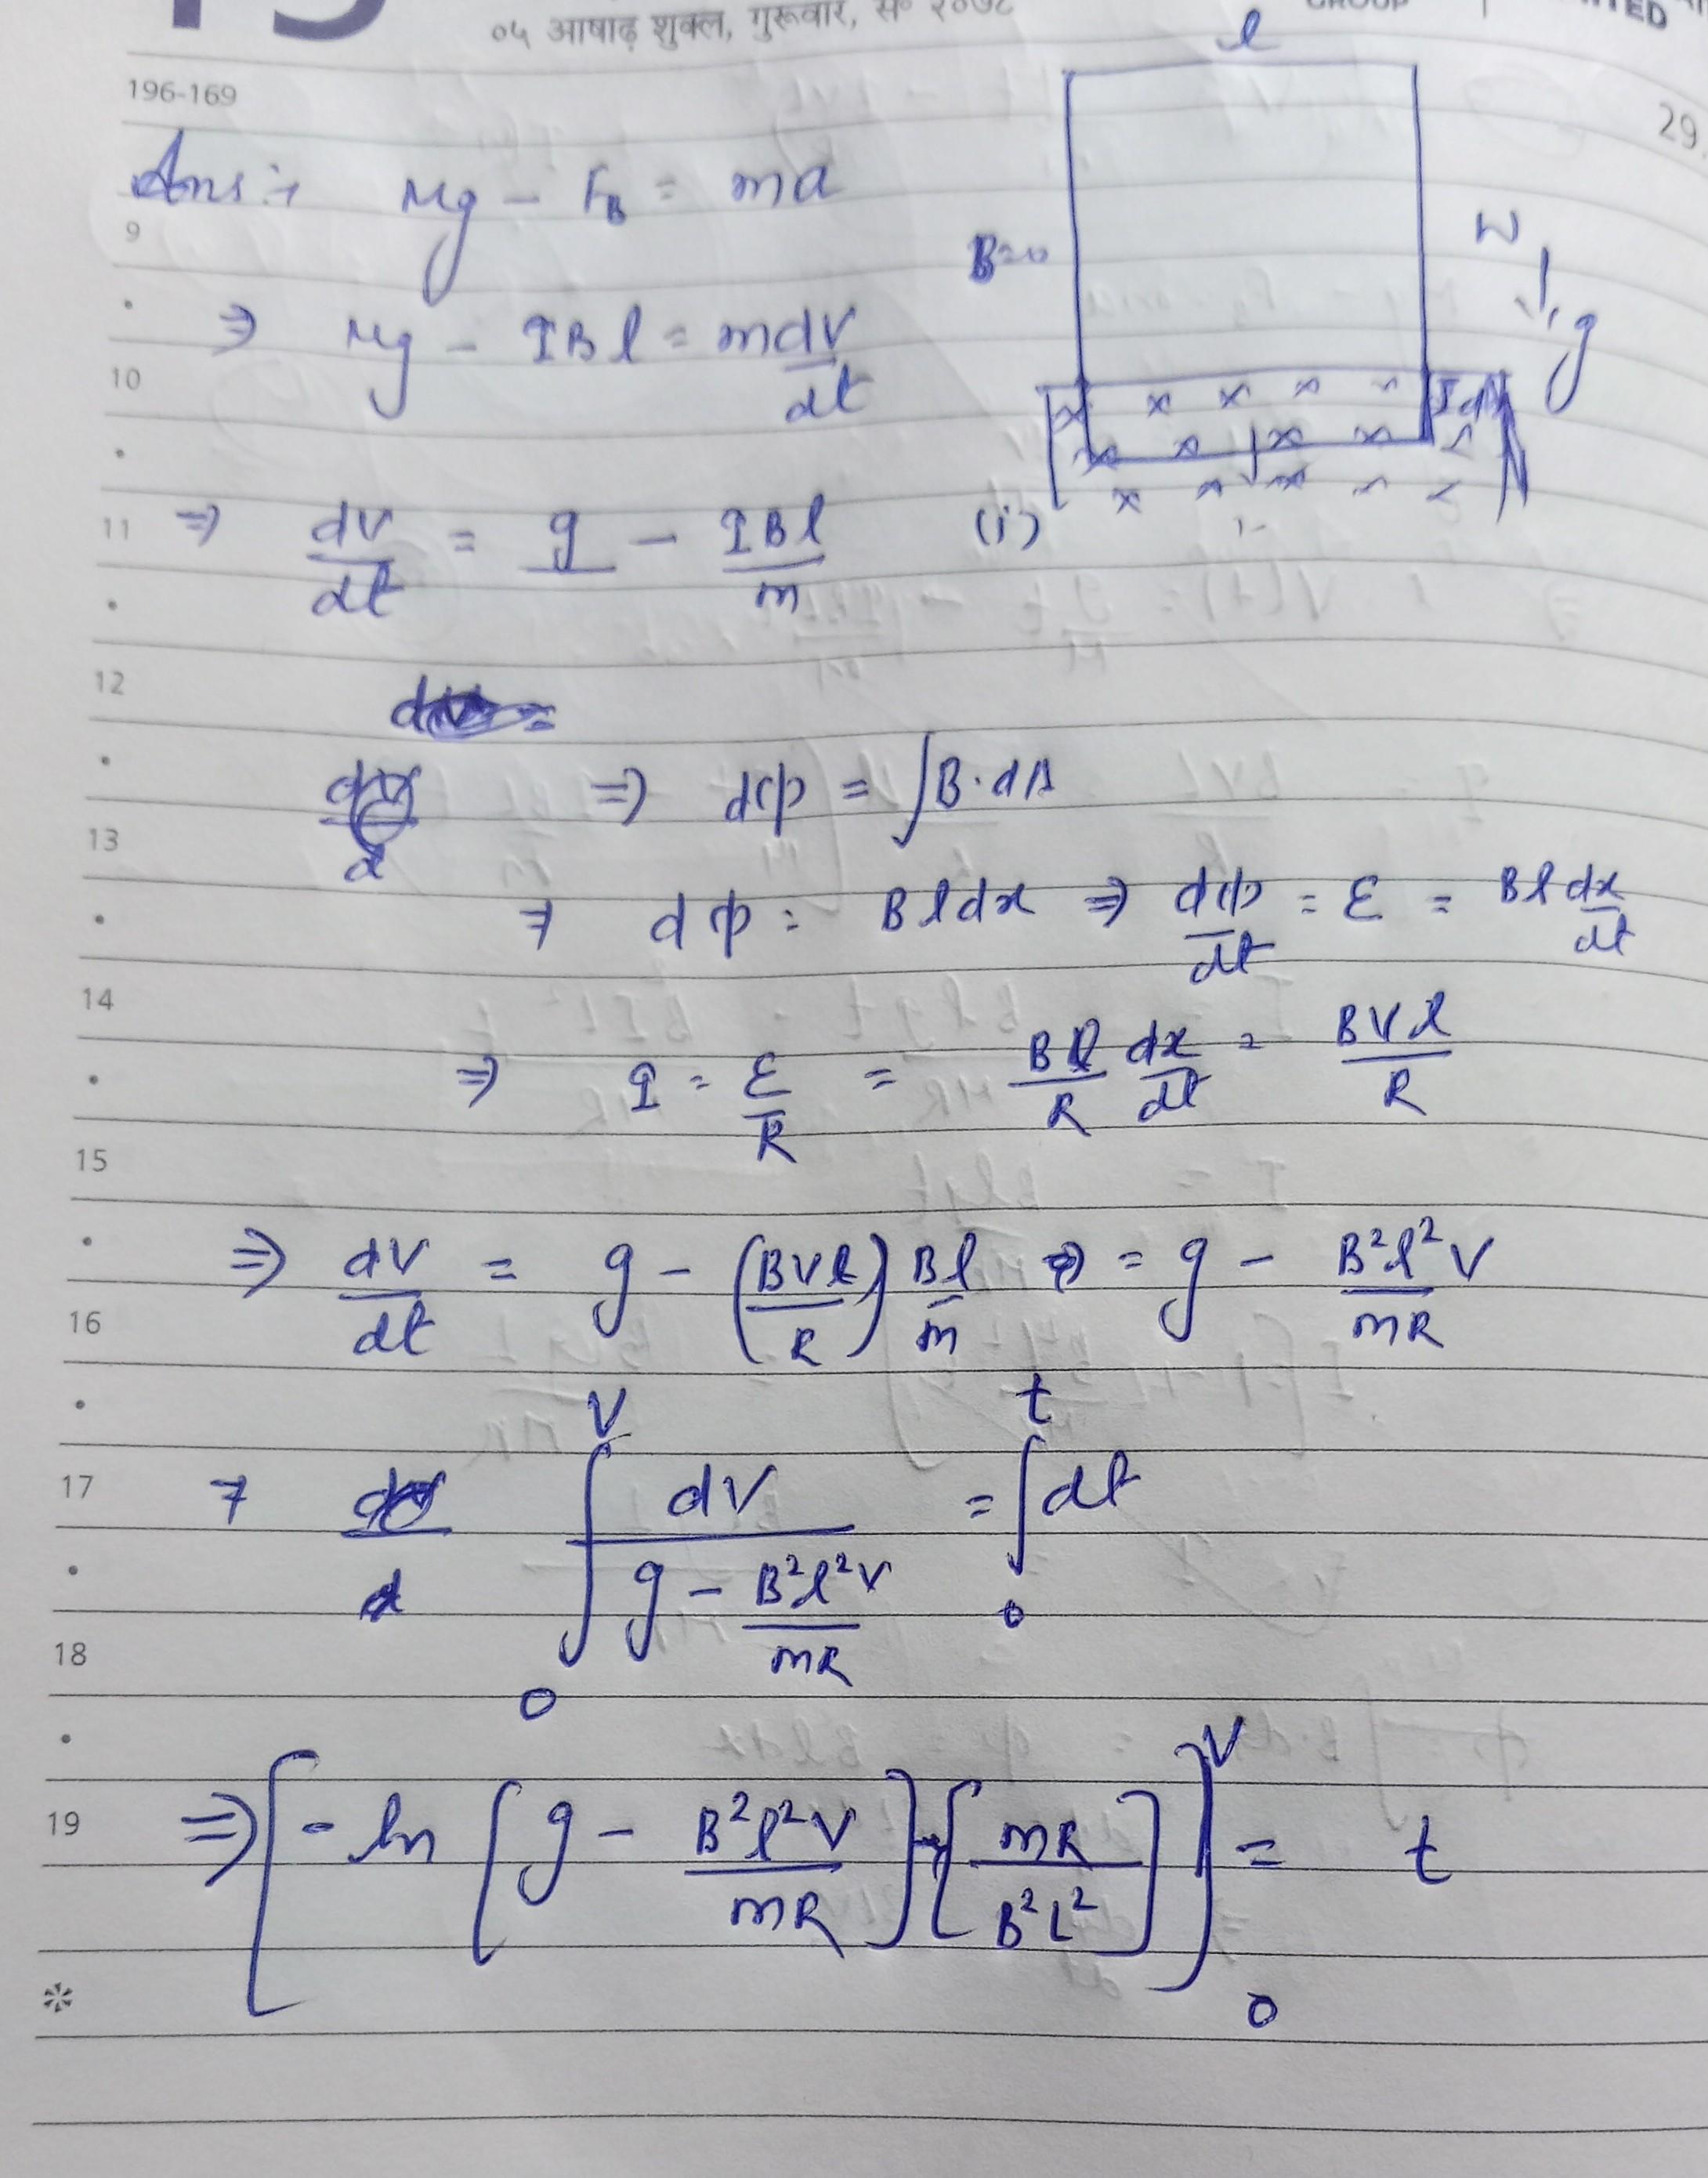 ०५ आषाढ़ शुक्ल, गुरूवार, सं० २०७८
196-169
29.
l
Ans :→ Mg - F_B = ma
B=0
W
g
9
⇒ Mg - IBl = m dV/dt
10
x x x x x
x x x x
11
⇒ dV/dt = g - IBl/m (i)
12
⇒ dφ = ∫B·dA
13
⇒ dφ = Bldx ⇒ dφ/dt = ε = Bl dx/dt
14
⇒ I = ε/R = Bl/R dx/dt = BVl/R
15
⇒ dV/dt = g - (BVl/R) Bl/m ⇒ = g - B²l²V/mR
16
17
⇒ ∫₀^V dV/(g - B²l²V/mR) = ∫₀^t dt
18
19
⇒ [-ln [g - B²l²V/mR] [mR/B²L²]]₀^V = t